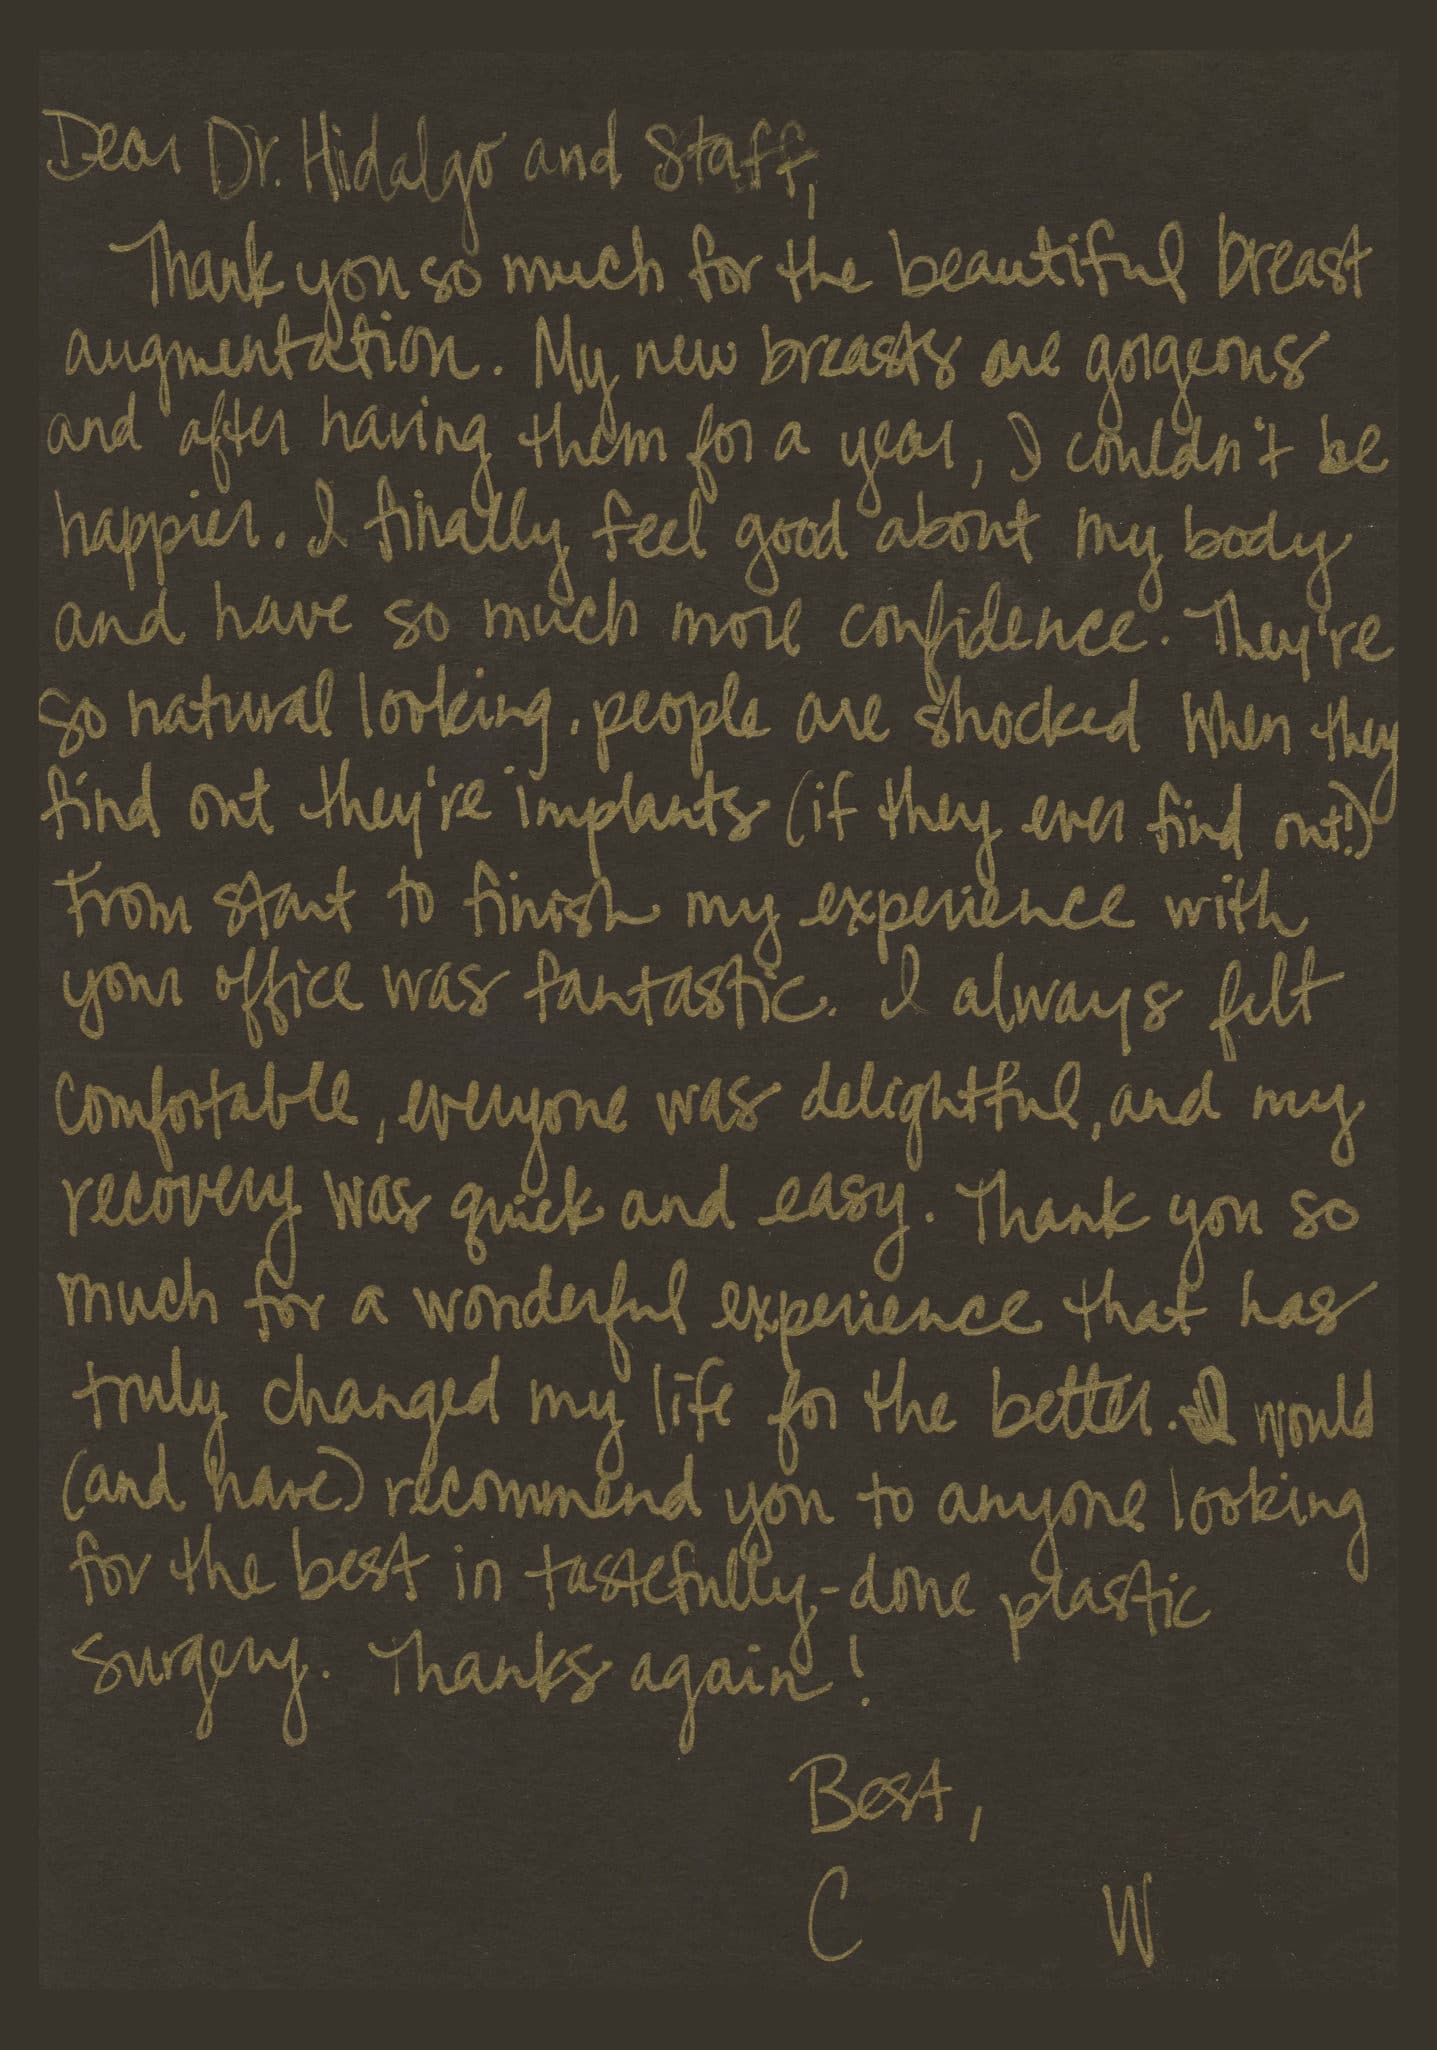 Dear Dr. Hidalgo and Staff,
Thank you so much for the beautiful breast
augmentation. My new breasts are gorgeous
and after having them for a year, I couldn't be
happier. I finally feel good about my body
and have so much more confidence. They're
so natural looking. people are shocked when they
find out they're implants (if they ever find out!)
From start to finish my experience with
your office was fantastic. I always felt
comfortable, everyone was delightful, and my
recovery was quick and easy. Thank you so
much for a wonderful experience that has
truly changed my life for the better. I would
(and have) recommend you to anyone looking
for the best in tastefully-done plastic
surgery. Thanks again!
Best,
C W